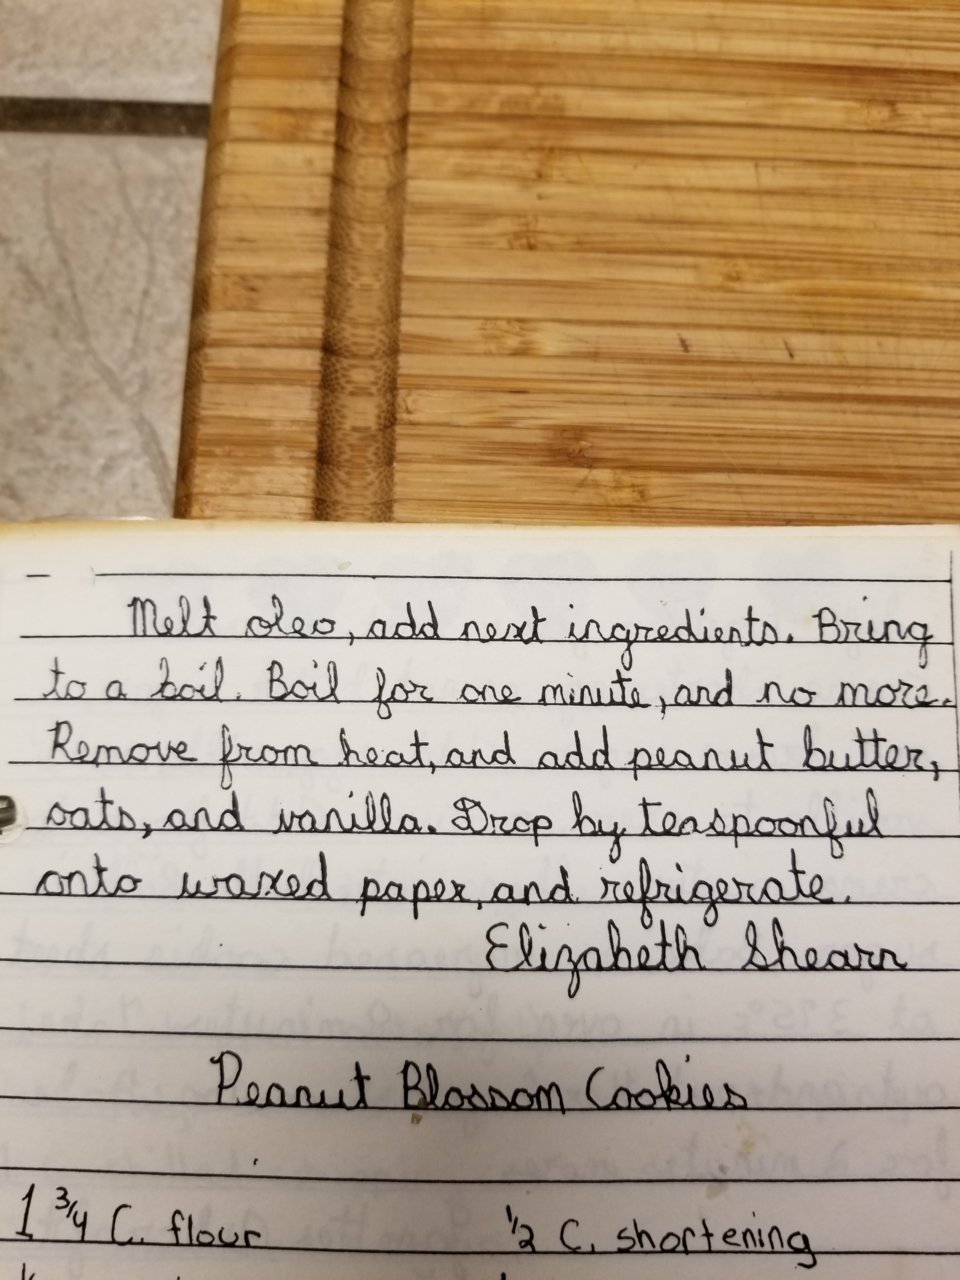 Melt oleo, add next ingredients. Bring
to a boil. Boil for one minute, and no more.
Remove from heat, and add peanut butter,
oats, and vanilla. Drop by teaspoonful
onto waxed paper, and refrigerate.
Elizabeth Shearn
Peanut Blossom Cookies
1 3/4 C. flour 1/2 C. shortening